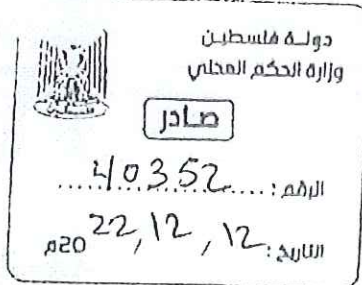 دولة فلسطين
وزارة الحكم المحلي
صادر
الرقم : 40352
التاريخ : 12 , 12 , 2022م